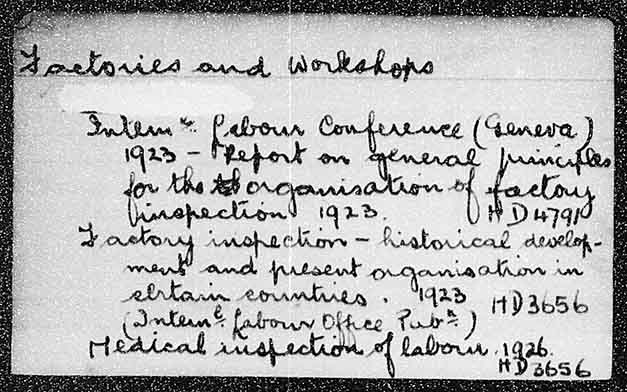 Factories and Workshops
Internl. Labour Conference (Geneva)
1923 - Report on general principles
for the organisation of factory
inspection 1923. HD4791
Factory inspection - historical develop-
ment and present organisation in
certain countries. 1923 HD3656
(Internl. Labour Office Pubn.)
Medical inspection of labour. 1926.
HD3656